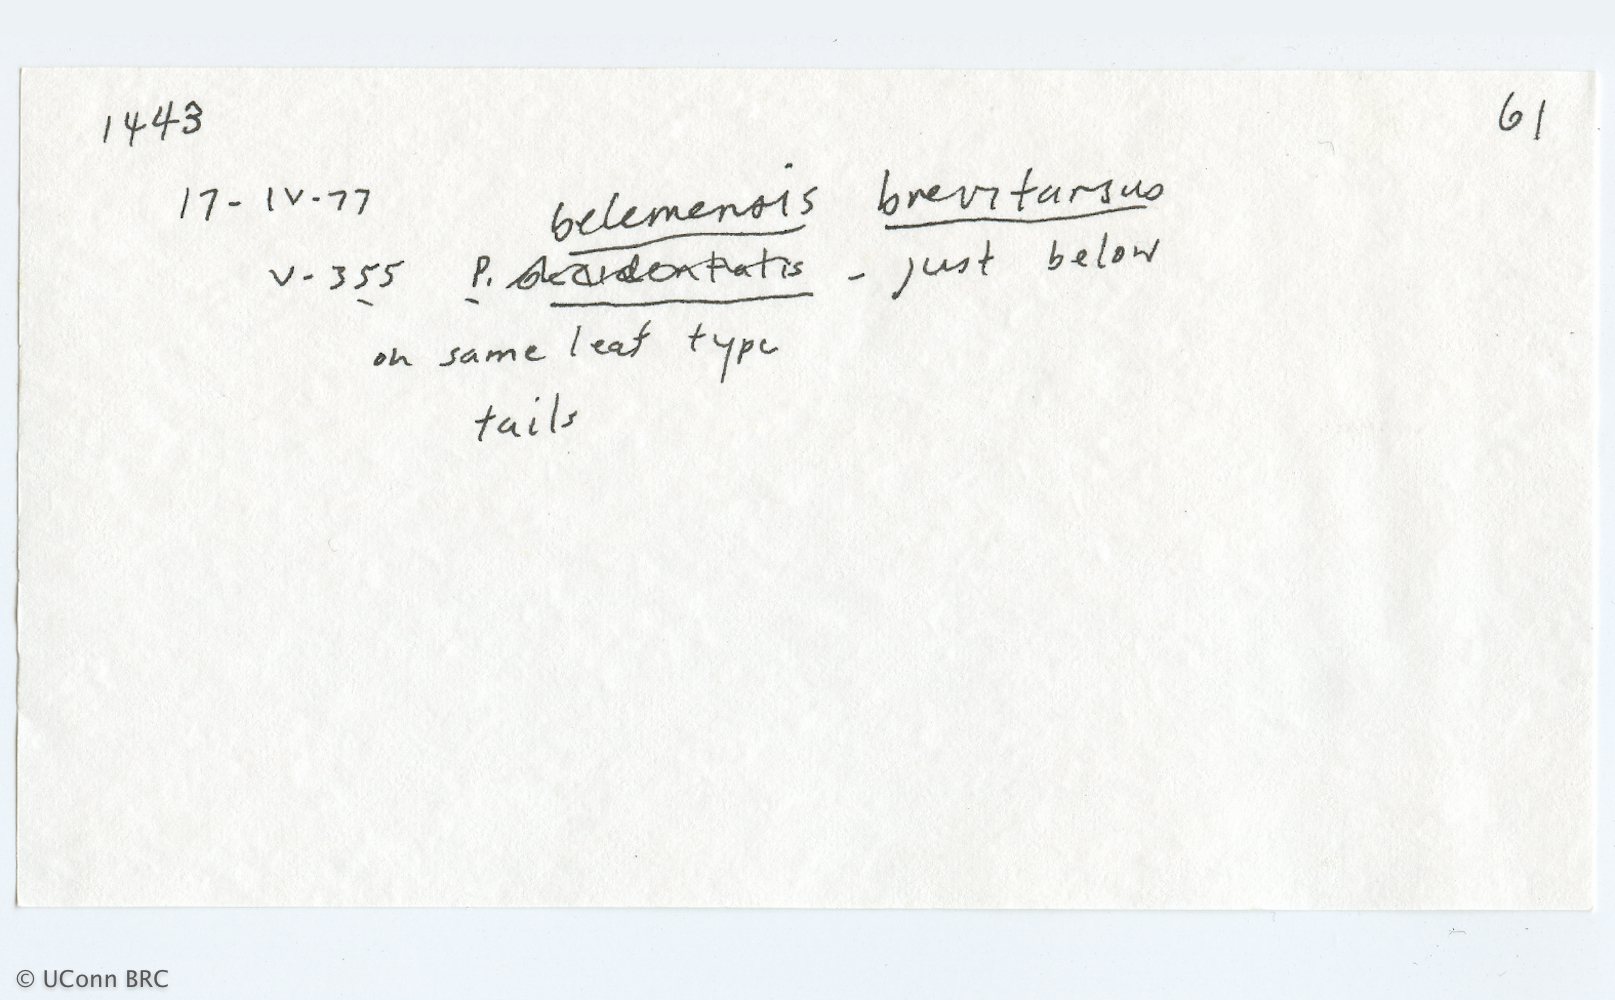 1443 61
17-IV-77
belemensis brevitarsus
V-355 P. occidentalis - just below
on same leaf type
tails
© UConn BRC